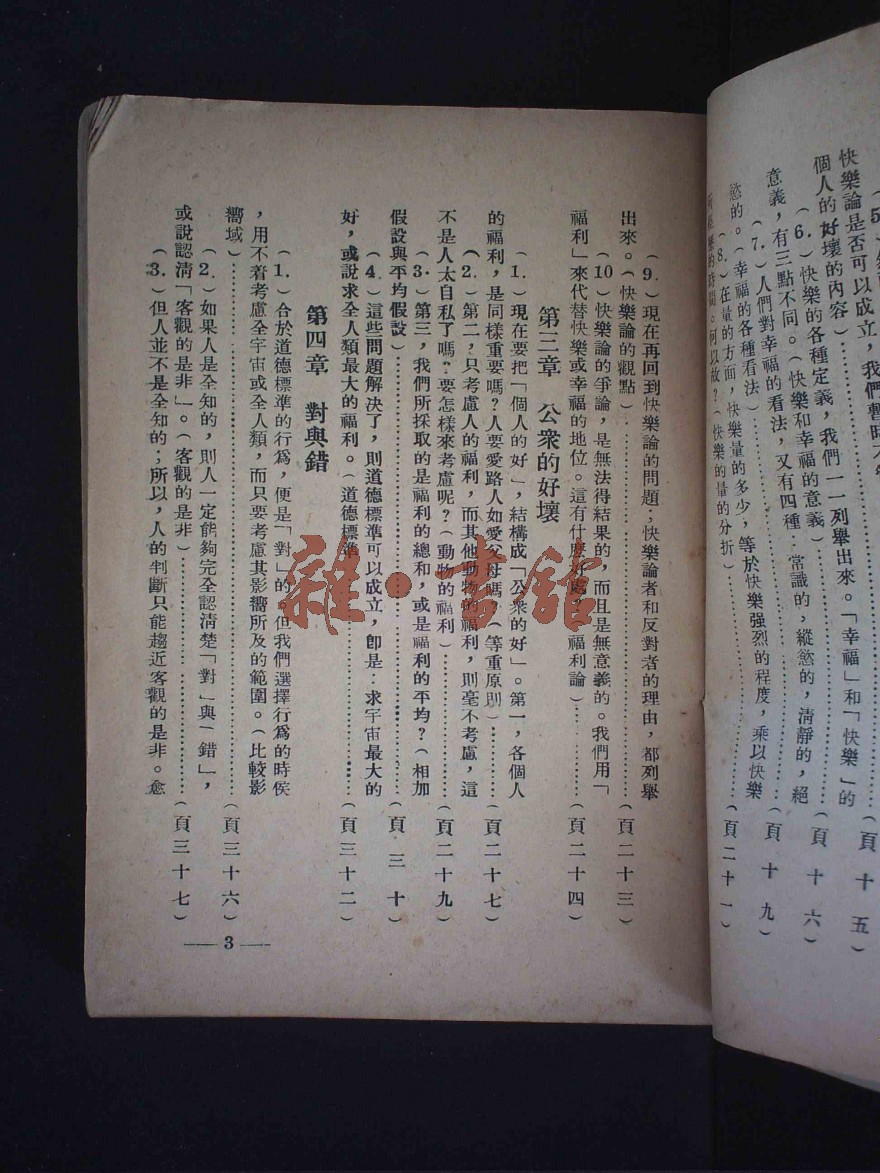 快樂論是否可以成立，我們暫時不
個人的好壞的內容）……（頁十五）
（6.）快樂的各種定義，我們一一列舉出來。「幸福」和「快樂」的
意義，有三點不同。（快樂和幸福的意義）……（頁十六）
（7.）人們對幸福的看法，又有四種：常識的，縱慾的，清靜的，絕
慾的。（幸福的各種看法）……（頁十九）
（8.）在量的方面，快樂量的多少，等於快樂强烈的程度，乘以快樂
的時間。何以故？（快樂的量的分折）……（頁二十一）
（9.）現在再回到快樂論的問題；快樂論者和反對者的理由，都列舉
出來。（快樂論的觀點）……（頁二十三）
（10）快樂論的爭論，是無法得結果的，而且是無意義的。我們用「
福利」來代替快樂或幸福的地位。這有什麼好處？（福利論）……（頁二十四）
第三章　公衆的好壞
（1.）現在要把「個人的好」，結構成「公衆的好」。第一，各個人
的福利，是同樣重要嗎？人要愛路人如愛父母嗎？（等重原則）……（頁二十七）
（2.）第二，只考慮人的福利，而其他動物的福利，則毫不考慮，這
不是人太自私了嗎？要怎樣來考慮呢？（動物的福利）……（頁二十九）
（3.）第三，我們所採取的是福利的總和，或是福利的平均？（相加
假設與平均假設）……（頁三十）
（4.）這些問題解決了，則道德標準可以成立，卽是：求宇宙最大的
好，或說求全人類最大的福利。（道德標準）……（頁三十二）
第四章　對與錯
（1.）合於道德標準的行爲，便是「對」的。但我們選擇行爲的時侯
，用不着考慮全宇宙或全人類，而只要考慮其影嚮所及的範圍。（比較影
嚮域）……（頁三十六）
（2.）如果人是全知的，則人一定能夠完全認清楚「對」與「錯」，
或說認清「客觀的是非」。（客觀的是非）……（頁三十七）
（3.）但人並不是全知的；所以，人的判斷只能趨近客觀的是非。愈
3
雜·書館